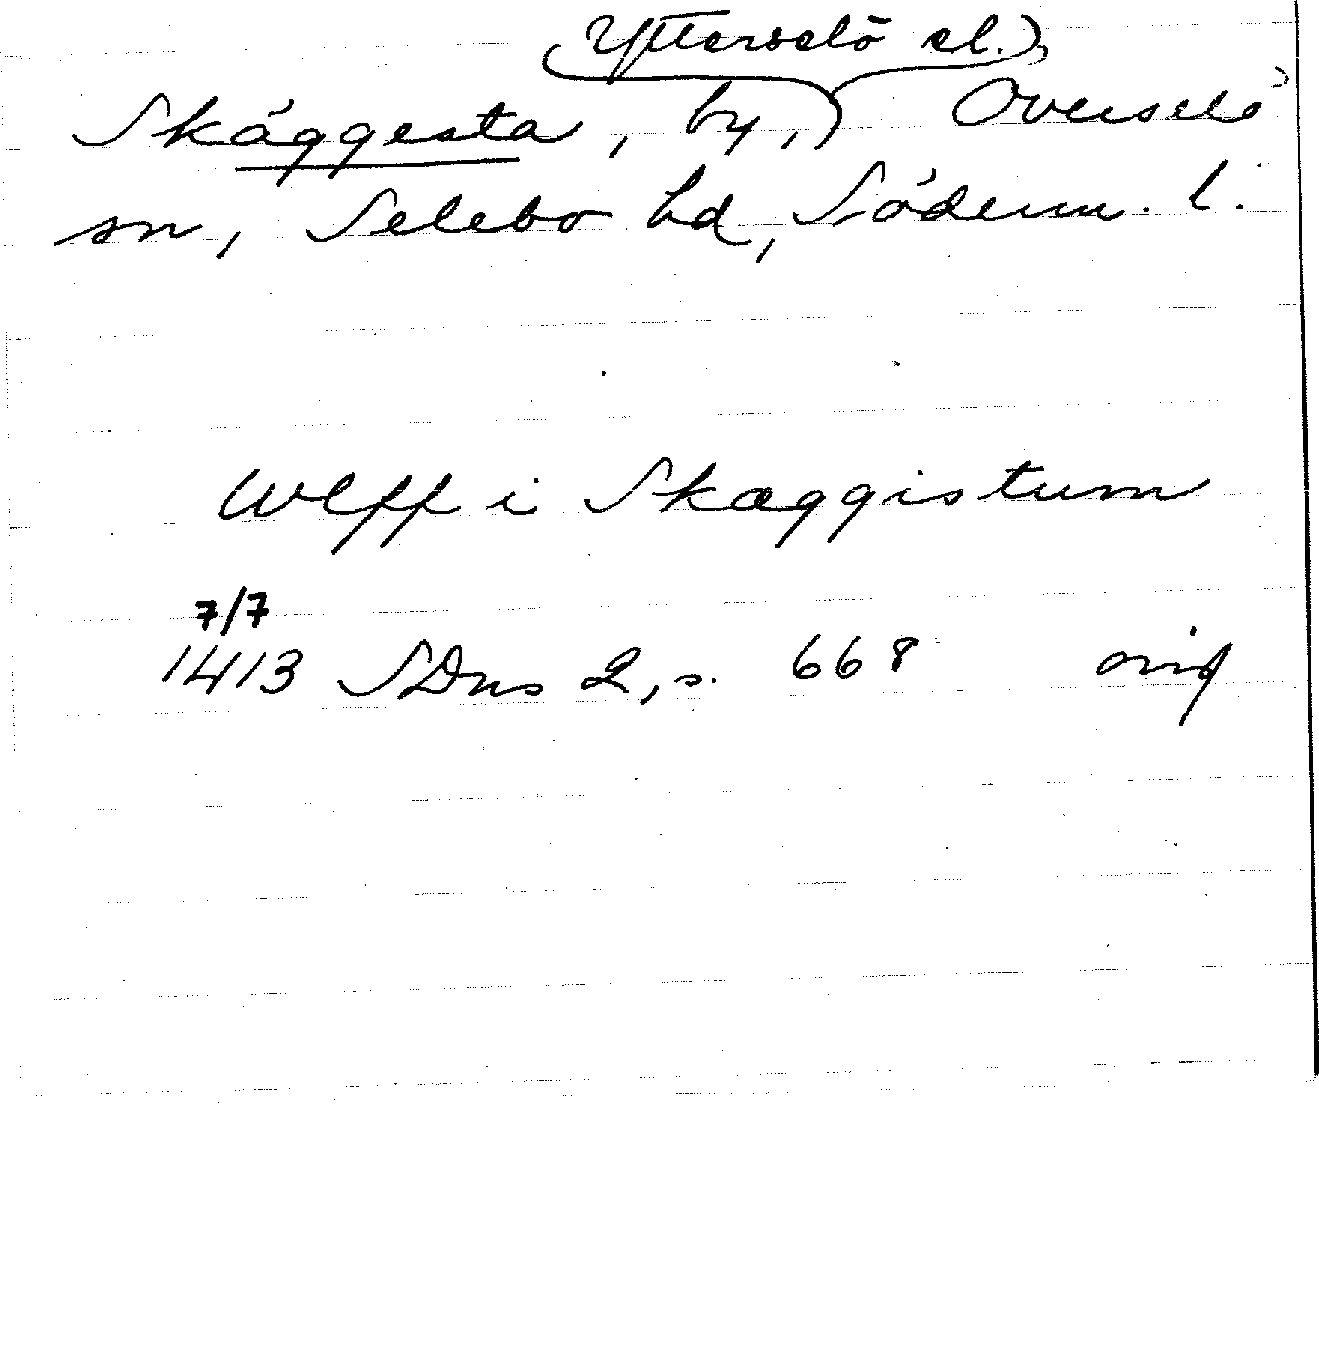 (Ytterselö el.)
Skäggesta, by, Överselö
sn, Selebo hd, Söderm. l.
Wlff i Skæggistum
7/7
1413 SDns 2, s. 668 orig